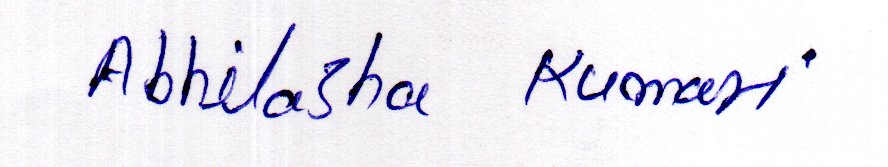 Abhilasha Kumari